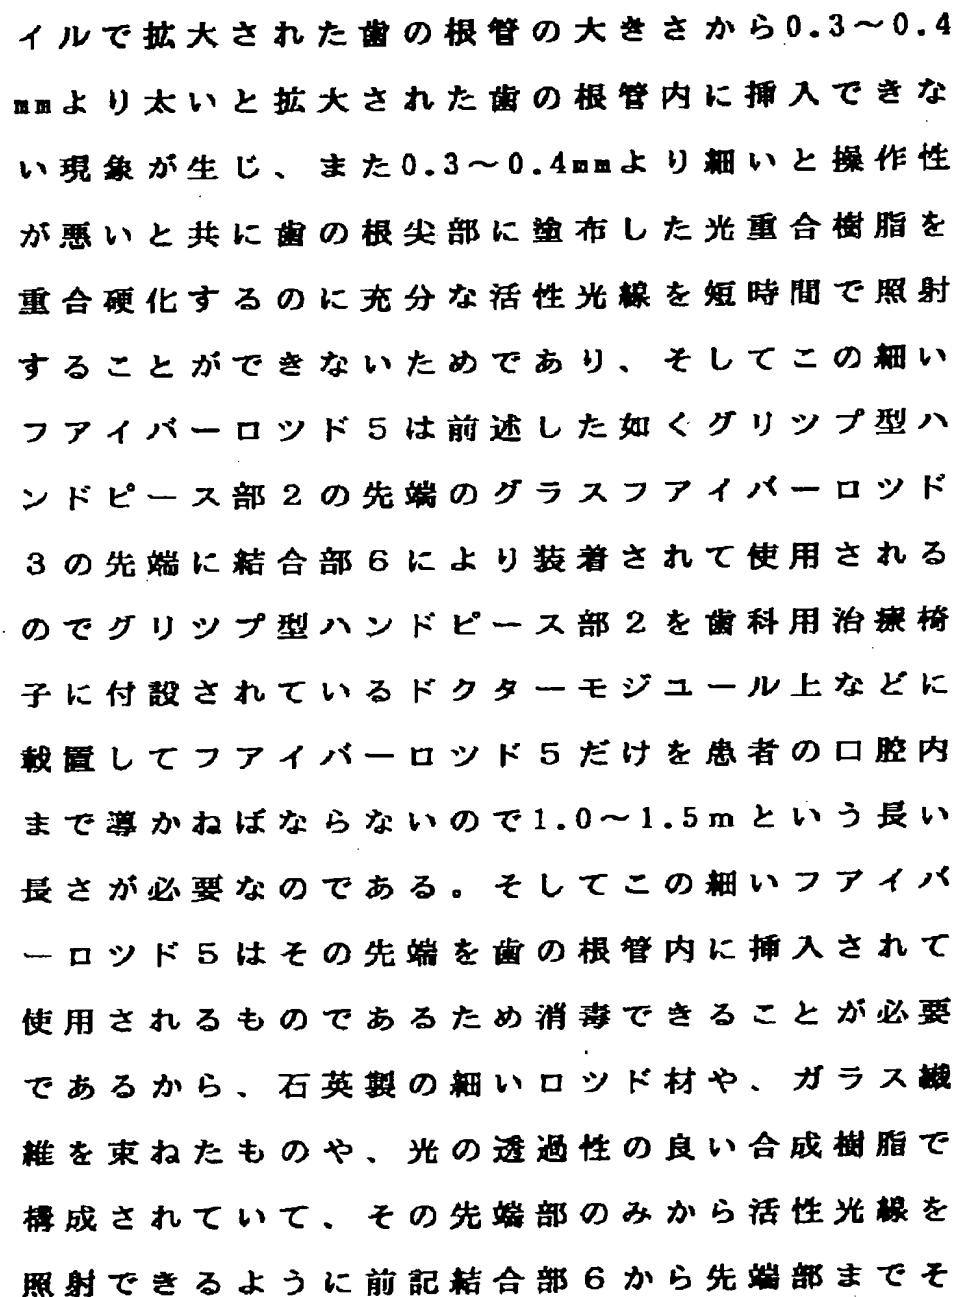 イルで拡大された歯の根管の大きさから0.3～0.4
mmより太いと拡大された歯の根管内に挿入できな
い現象が生じ、また0.3～0.4mmより細いと操作性
が悪いと共に歯の根尖部に塗布した光重合樹脂を
重合硬化するのに充分な活性光線を短時間で照射
することができないためであり、そしてこの細い
フアイバーロツド5は前述した如くグリツプ型ハ
ンドピース部2の先端のグラスフアイバーロツド
3の先端に結合部6により装着されて使用される
のでグリツプ型ハンドピース部2を歯科用治療椅
子に付設されているドクターモジユール上などに
載置してフアイバーロツド5だけを患者の口腔内
まで導かねばならないので1.0～1.5mという長い
長さが必要なのである。そしてこの細いフアイバ
ーロツド5はその先端を歯の根管内に挿入されて
使用されるものであるため消毒できることが必要
であるから、石英製の細いロツド材や、ガラス繊
維を束ねたものや、光の透過性の良い合成樹脂で
構成されていて、その先端部のみから活性光線を
照射できるように前記結合部6から先端部までそ